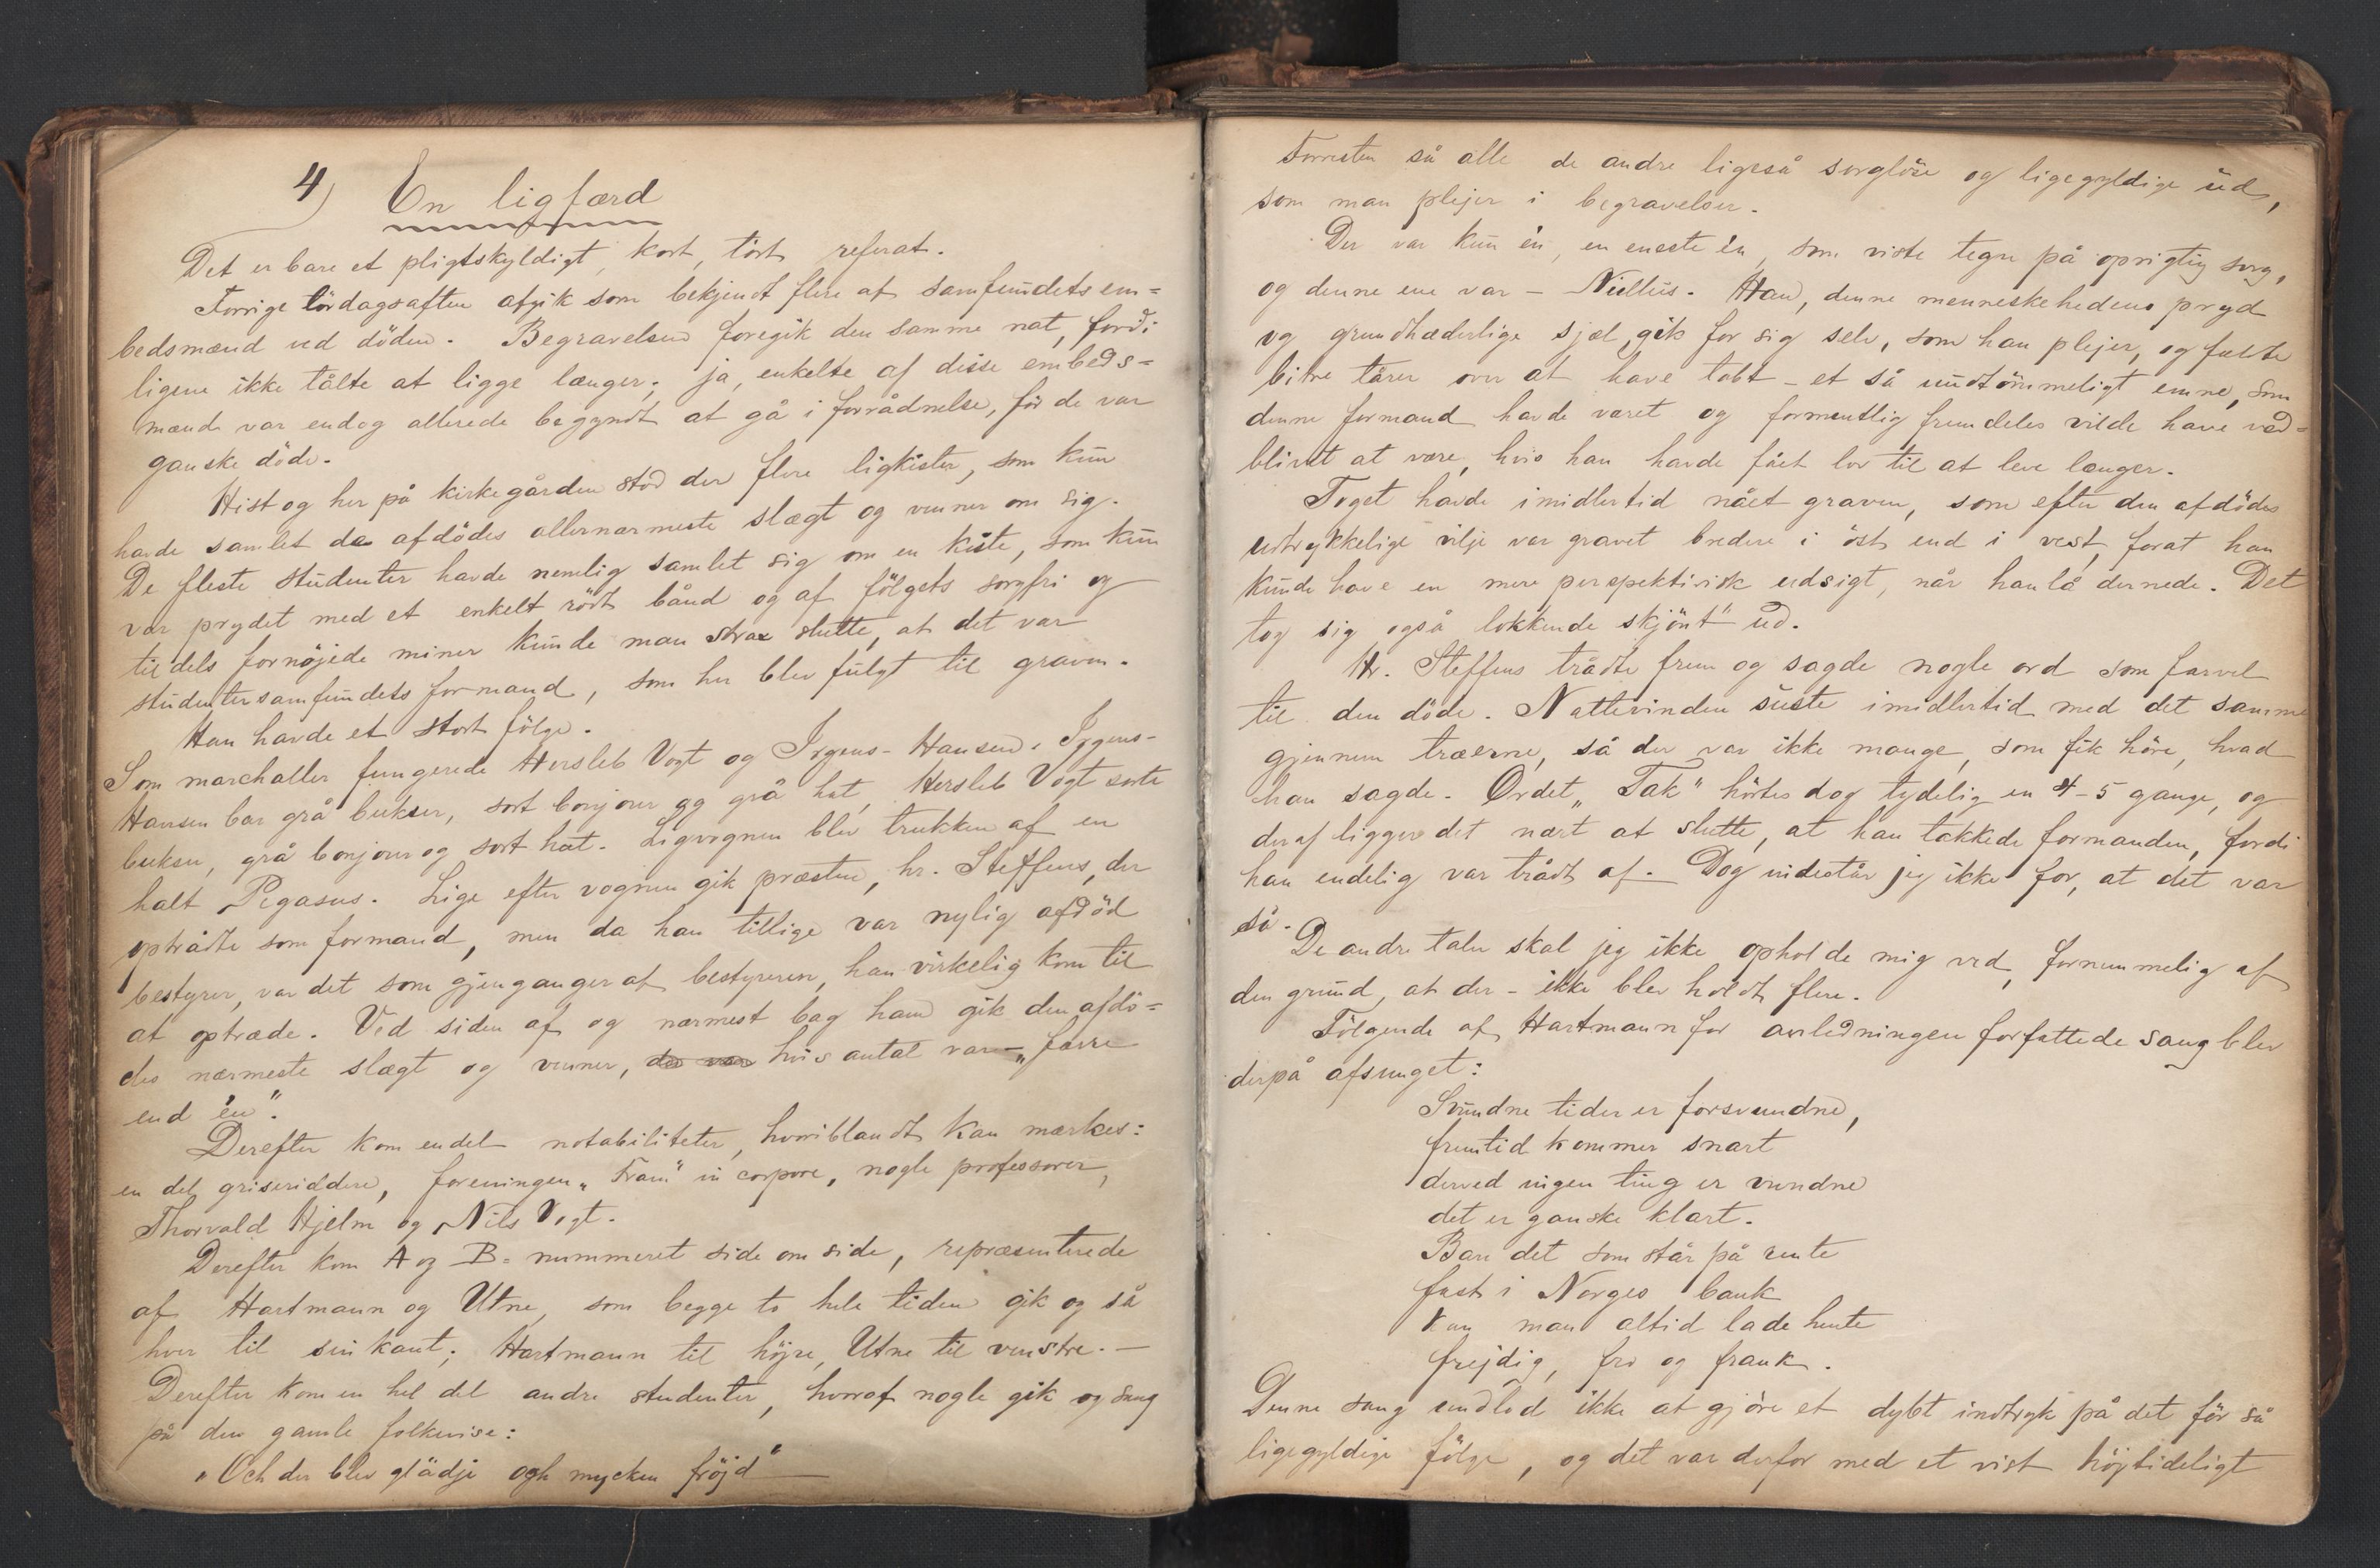 4) En ligfærd
Det er bare et pligtskyldigt, kort, tört referat.
Forrige lördagsaften afgik som bekjendt flere af samfundets em=
bedsmænd ved döden. Begravelsen foregik den samme nat, fordi
ligene ikke tålte at ligge længer; ja, enkelte af disse embeds=
mænd var endog allerede begyndt at gå i forrådnelse, för de var
ganske döde.
Hist og her på kirkegården stod der flere ligkister, som kun
havde samlet de afdödes allernærmeste slægt og venner om sig.
De fleste studenter havde nemlig samlet sig om en kiste, som kun
var prydet med et enkelt rödt bånd og af fölgets sorgfri og
tildels fornöjede miner kunde man strax slutte, at det var
studentersamfundets formand, som her blev fulgt til graven.
Han havde et stort fölge.
Som marchaller fungerede Hersleb Vogt og Irgens-Hansen. Irgens-
Hansen bar grå bukser, sort bonjour og grå hat, Hersleb Vogt sorte
bukser, grå bonjour og sort hat. Ligvognen blev trukken af en
halt Pegasus. Lige efter vognen gik præsten, hr. Steffens, der
optrådte som formand, men da han tillige var nylig afdöd
bestyrer, var det som gjenganger af bestyreren, han virkelig kom til
at optræde. Ved siden af og nærmest bag ham gik den afdö=
des nærmeste slægt og venner, der var hvis antal var – „færre
end én".
Derefter kom endel notabiliteter, hvoriblandt kan mærkes:
en del griseriddere, foreningen „Fram" in corpore, nogle professorer,
Thorvald Hjelm og Nils Vogt.
Derefter kom A og B-nummeret side om side, repræsenterede
af Hartmann og Utne, som begge to hele tiden gik og så
hver til sin kant; Hartmann til höjre, Utne til venstre. –
Derefter kom en hel del andre studenter, hvoraf nogle gik og sang
på den gamle folkevise:
„Och der blev glädje ogh mycken fröjd" –
Forresten så alle de andre ligeså sorglöse og ligegyldige ud,
som man plejer i begravelser.
Der var kun én, en eneste én, som viste tegn på oprigtig sorg,
og denne ene var – Nullus. Han, denne menneskehedens pryd
og grundhæderlige sjæl, gik for sig selv, som han plejer, og fældte
bitre tårer over at have tabt – et så uudtömmeligt emne, som
denne formand havde været og formentlig fremdeles vilde have ved=
blivet at være, hvis han havde fået lov til at leve længer.
Toget havde imidlertid nået graven, som efter den afdödes
udtrykkelige vilje var gravet bredere i öst end i vest, forat han
kunde have en mere perspektivisk udsigt, når han lå dernede. Det
tog sig også lokkende skjönt" ud.
Hr. Steffens trådte frem og sagde nogle ord som farvel
til den döde. Nattevinden suste imidlertid med det samme
gjennem træerne, så der var ikke mange, som fik höre, hvad
han sagde. Ordet „Tak" hörtes dog tydelig en 4-5 gange, og
deraf ligger det nært at slutte, at han takkede formanden, fordi
han endelig var trådt af. – Dog indestår jeg ikke for, at det var
så.
De andre taler skal jeg ikke opholde mig ved, fornemmelig af
den grund, at der – ikke blev holdt flere.
Fölgende af Hartmann for anledningen forfattede sang blev
derpå afsunget:
Svundne tider er forsvundne,
fremtid kommer snart
derved ingen ting er vundne
det er ganske klart.
Bare det som står på rente
fast i Norges bank
kan man altid lade hente
frejdig, fro og frank.
Denne sang undlod ikke at gjöre et dybt indtryk på det för så
ligegyldige fölge, og det var derfor med et vist höjtideligt